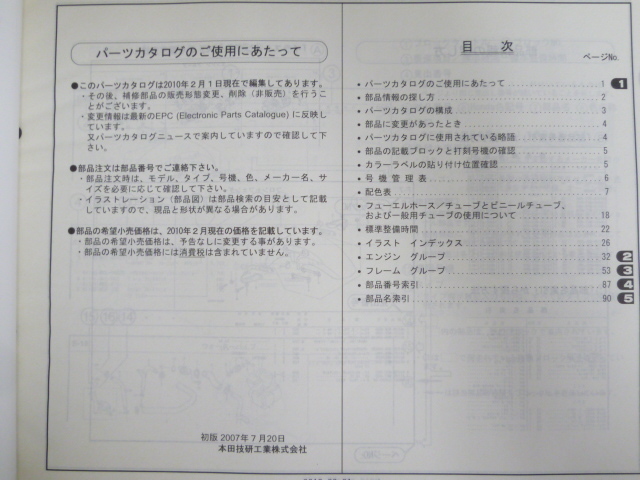 パーツカタログのご使用にあたって
●このパーツカタログは2010年2月1日現在で編集してあります。
・その後，補修部品の販売形態変更、削除（非販売）を行うこ
とがございます。
・変更情報は最新のEPC (Electronic Parts Catalogue) に反映し
ています。
又パーツカタログニュースで案内していますので確認して下
さい。
●部品注文は部品番号でご連絡下さい。
・部品注文時は、モデル、タイプ、号機、色、メーカー名、サ
イズを必要に応じて確認して下さい。
・イラストレーション（部品図）は部品検索の目安として記載
していますので、現品と形状が異なる場合があります。
●部品の希望小売価格は、2010年2月現在の価格を記載しています。
・部品の希望小売価格は、予告なしに変更する事があります。
・部品の希望小売価格には消費税は含まれていません。
初版 2007年7月20日
本田技研工業株式会社
目 次
ページNo.
・パーツカタログのご使用にあたって 1 1
・部品情報の探し方 2
・パーツカタログの構成 3
・部品に変更があったとき 4
・パーツカタログに使用されている略語 4
・部品の記載ブロックと打刻号機の確認 5
・カラーラベルの貼り付け位置確認 5
・号 機 管 理 表 6
・配色表 7
・フューエルホース／チューブとビニールチューブ、
および一般用チューブの使用について 18
・標準整備時間 22
・イラスト インデックス 26
・エンジン グループ 32 2
・フレーム グループ 53 3
・部品番号索引 87 4
・部品名索引 90 5